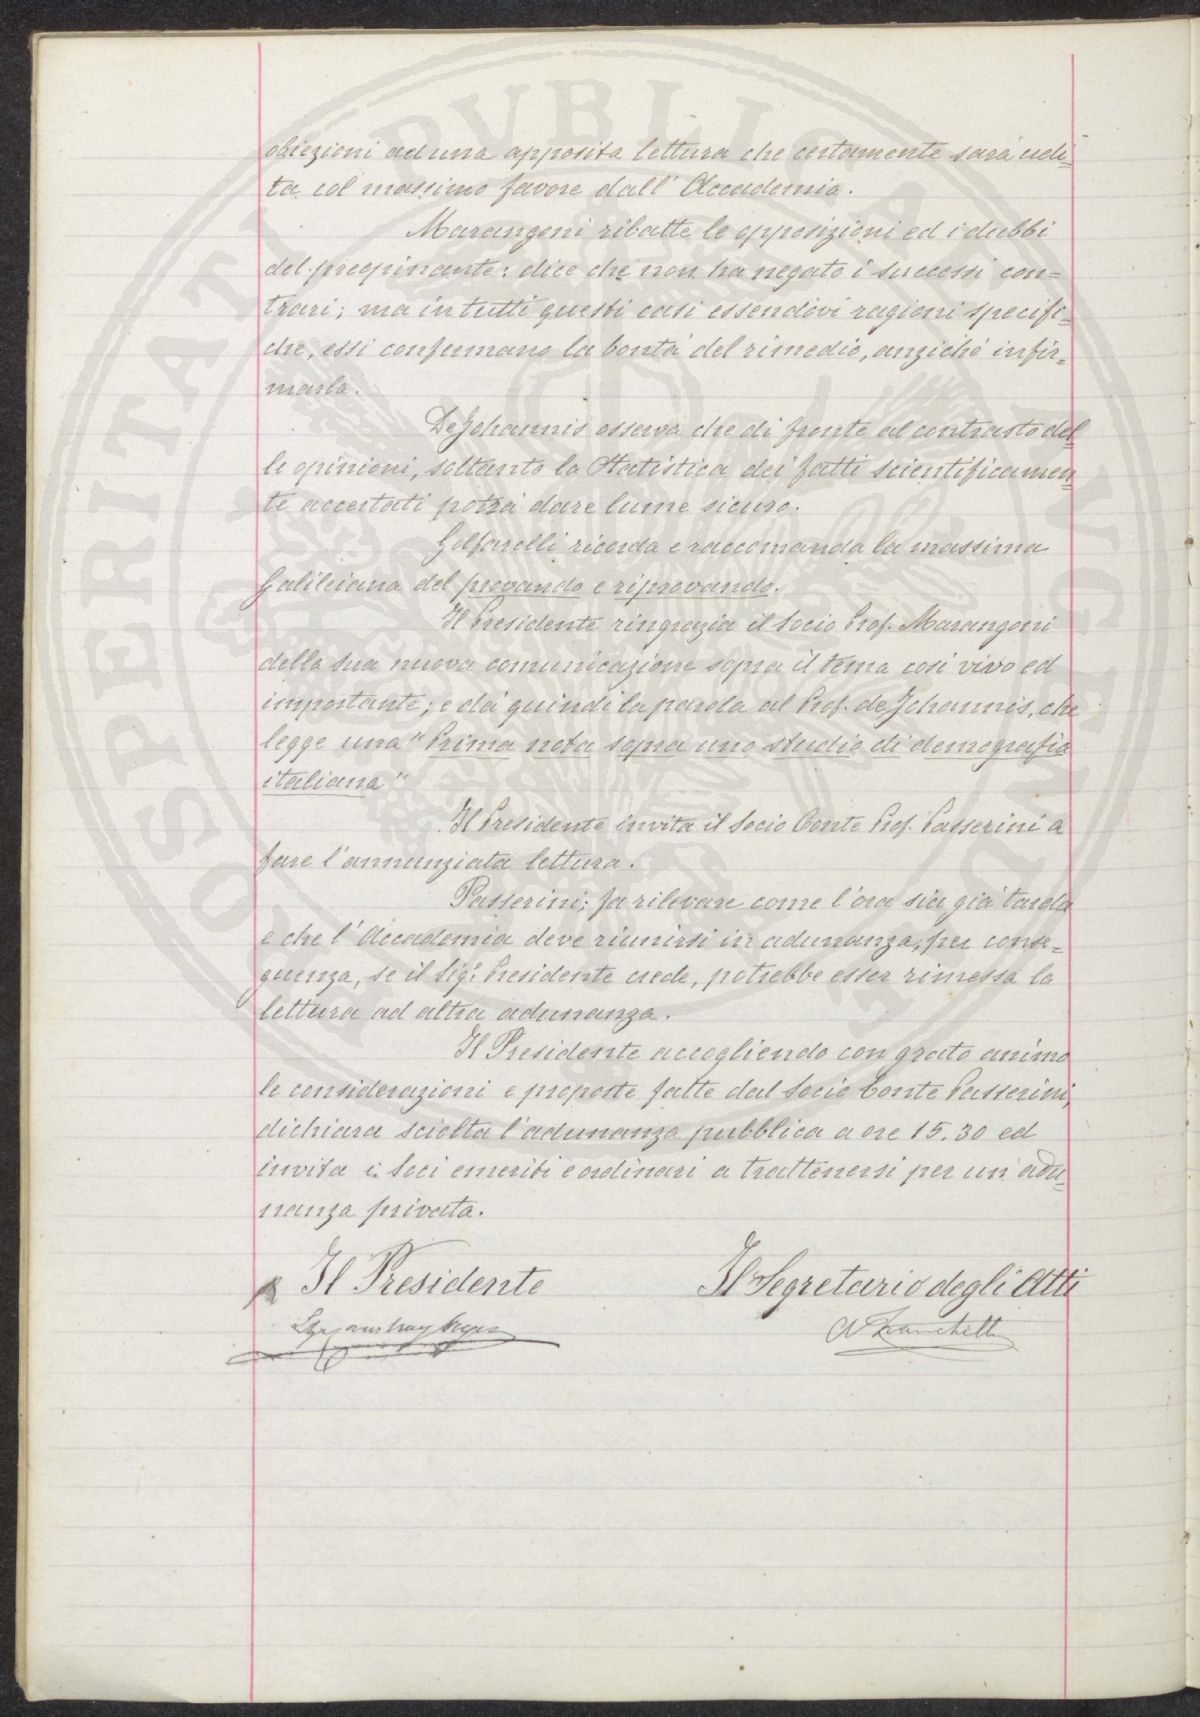 obiezioni ad una apposita lettura che certamente sarà udi=
ta col massimo favore dall'Accademia.
Marangoni ribatte le opposizioni ed i dubbi
del preopinante: dice che non ha negato i successi con=
trari; ma in tutti questi casi essendovi ragioni specifi=
che, essi confermano la bontà del rimedio, anziché infir=
marla.
De Johannis osserva che di fronte al contrasto del=
le opinioni, soltanto la Statistica dei fatti scientificamen=
te accertati potrà dare lume sicuro.
Golfarelli ricorda e raccomanda la massima
Galileiana del provando e riprovando.
Il Presidente ringrazia il Socio Prof. Marangoni
della sua nuova comunicazione sopra il tema così vivo ed
importante; e dà quindi la parola al Prof. de Johannis, che
legge una "Prima nota sopra uno studio di demografia
italiana"
Il Presidente invita il Socio Conte Prof. Passerini a
fare l'annunziata lettura.
Passerini; fa rilevare come l'ora sia già tarda
e che l'Accademia deve riunirsi in adunanza; per conse=
guenza, se il Sig. Presidente crede, potrebbe esser rimessa la
lettura ad altra adunanza.
Il Presidente accogliendo con grato animo
le considerazioni e proposte fatte dal Socio Conte Passerini,
dichiara sciolta l'adunanza pubblica a ore 15.30 ed
invita i Soci emeriti e ordinari a trattenersi per un'adu=
nanza privata.
Il Presidente
Il Segretario degli Atti
A Franchetti
OSPERITATI PVBLICA